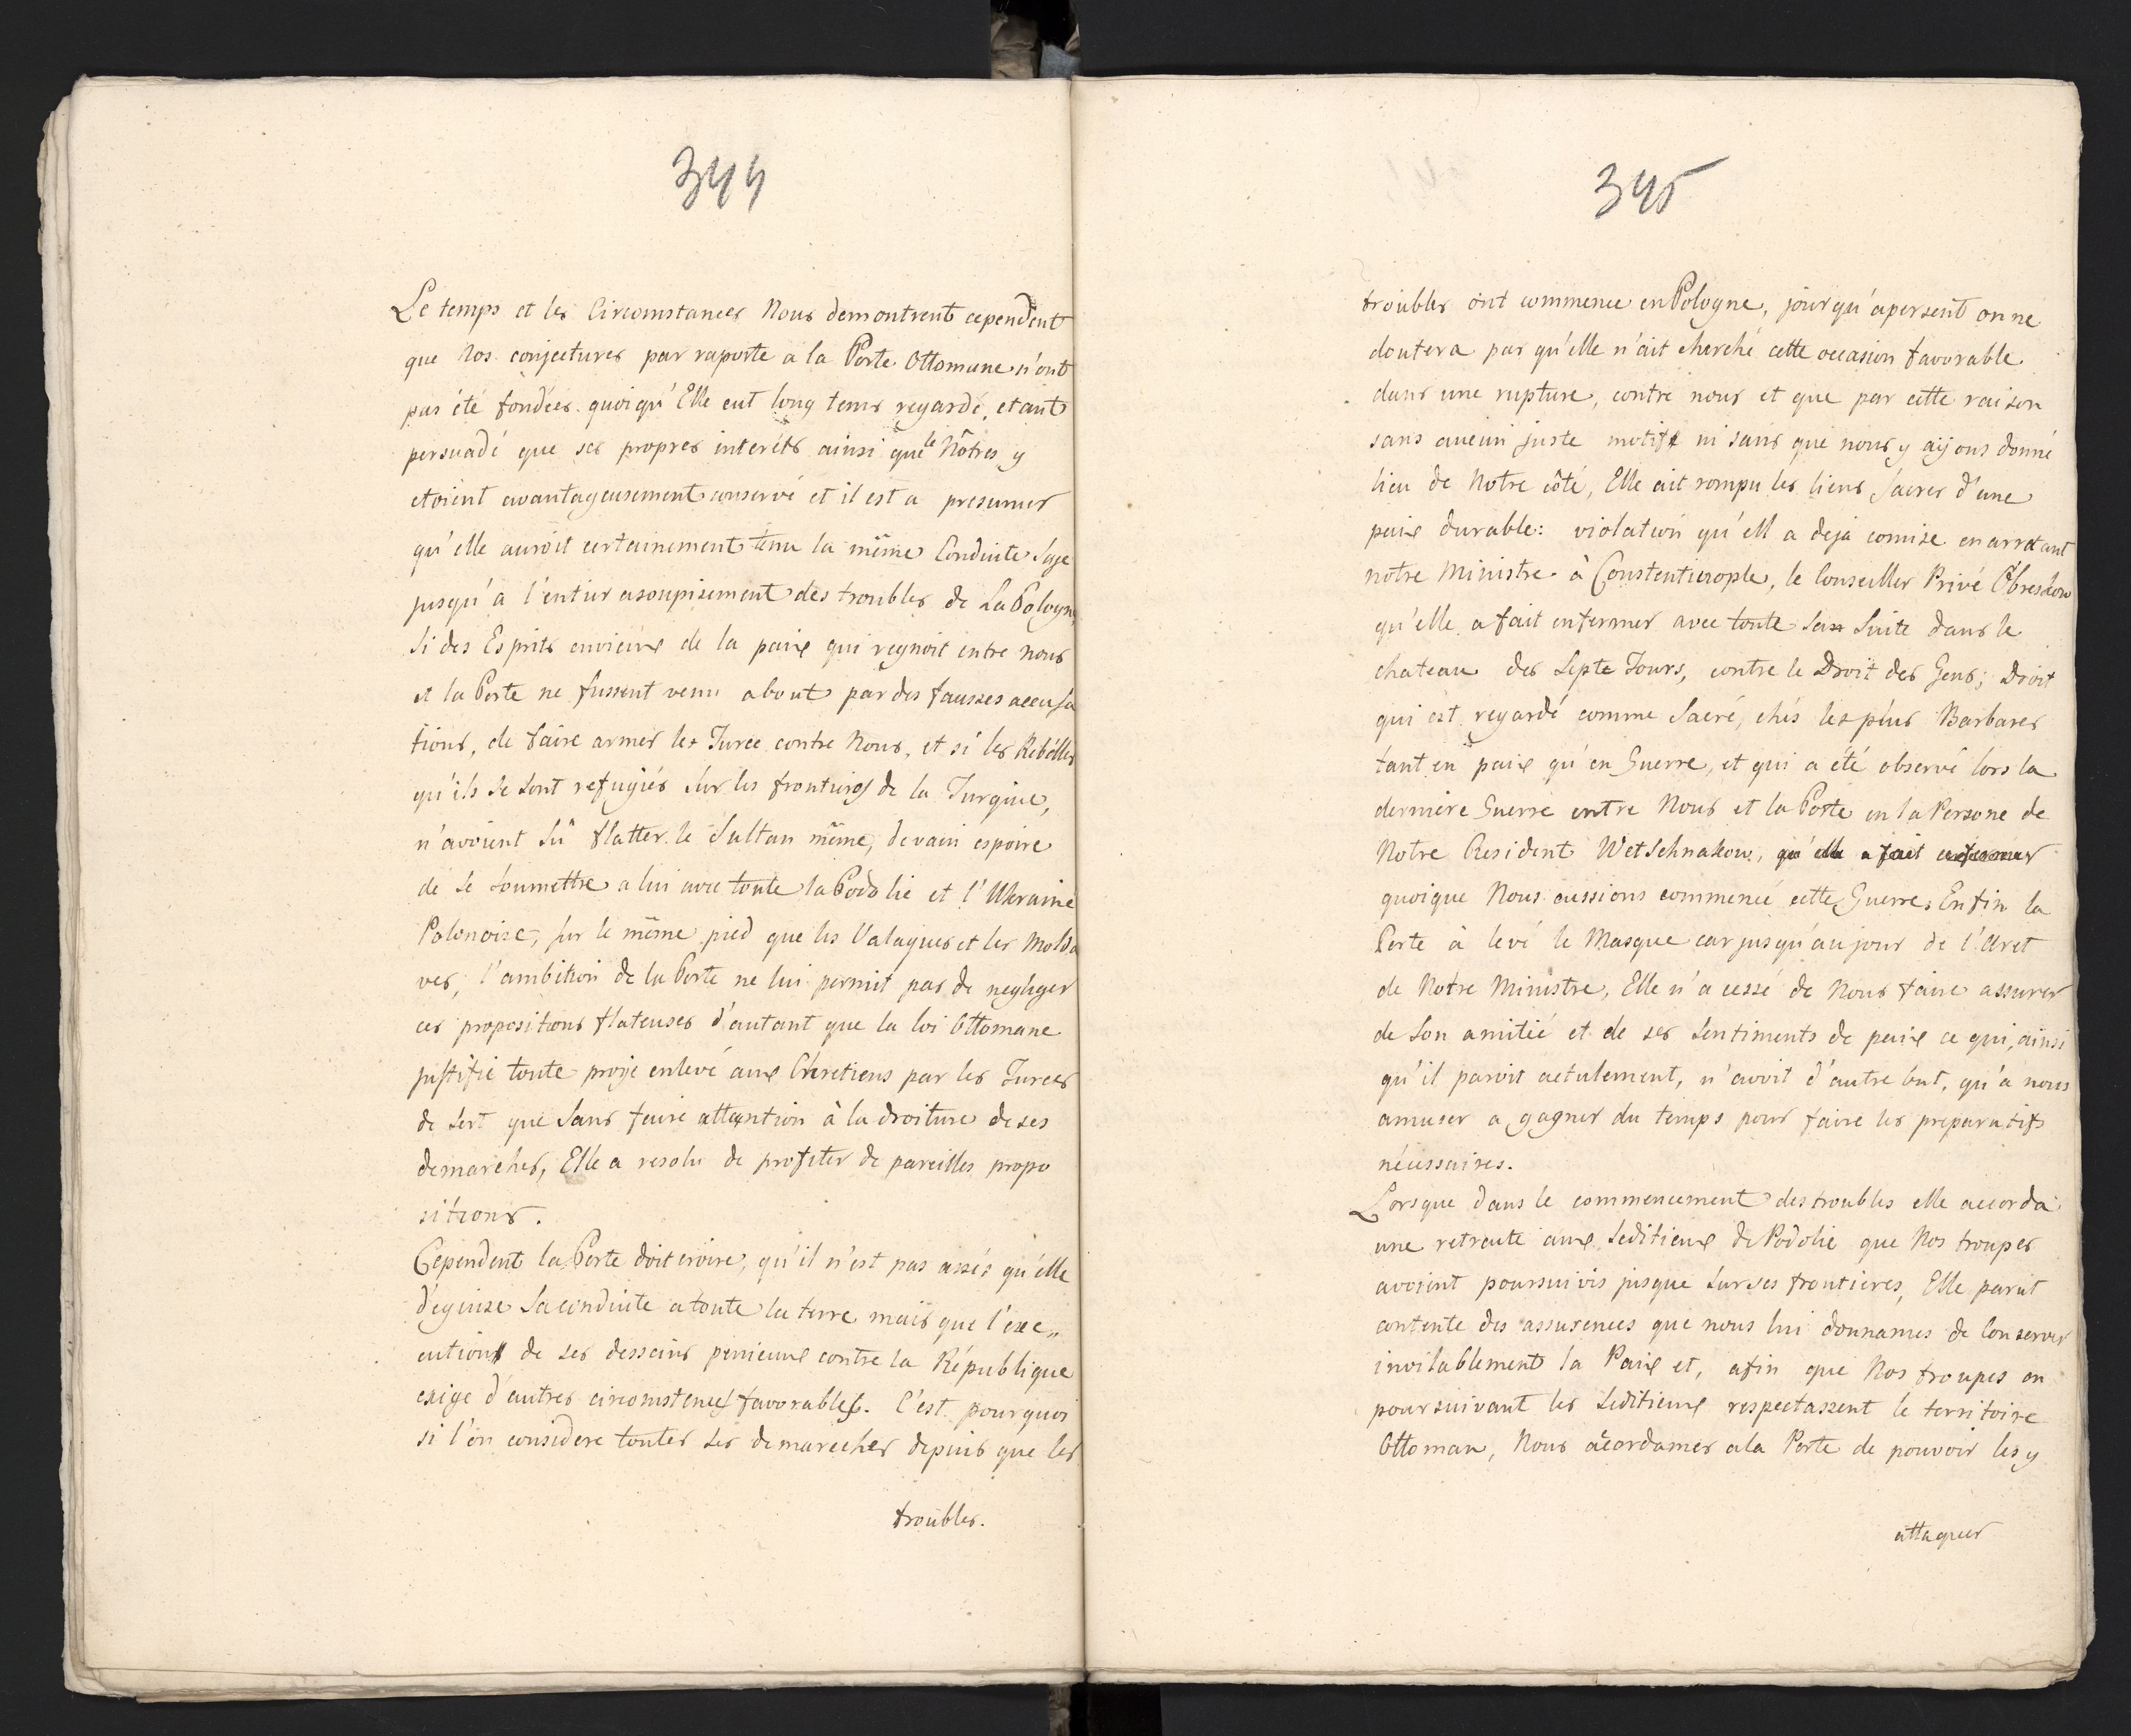 344
Le temps et les Circomstances Nous demontrent cependent
que Nos conjectures par raporte a la Porte Ottomane n'ont
pas été fondées. quoiqu'Elle eut long tems regardé, etant
persuadé que ses propres interéts ainsi que le Nôtres y
etoient avantageusement conservé et il est a presumer
qu'elle auroit certainement tenu la même Conduite Sage
jusqu'à l'entier asoupisement des troubles de La Pologne,
Si des Esprits envieux de la paix qui regnoit entre nous
et la Porte ne fussent venu about par des fausses accusa
tions, de faire armer les Turce contre Nous, et si les Rebélles
qu'ils se sont refugiés sur les frontieres de la Turquie,
n'avoient sû flatter le Sultan même, de vain espoire
de se soumettre a lui avec toute la Podolie et l'Ukraine
Polonoise, sur le même pied que les Valaques et les Molda
ves, l'ambition de la Porte ne lui permit pas de negliger
ces propositions flateuses d'autant que la loi Ottomane
justifie toute proye enlevé aux Chretiens par les Turces
de sort que sans faire attention à la droiture de ses
demarches, Elle a resolu de profiter de pareilles propo
sitions.
Cependent la Porte doit croire, qu'il n'est pas assés qu'elle
déguise sa conduite a toute la terre mais que l'exe„
cution de ses desseins pernieux contre la République
exige d'autres circomstences favorables. C'est pourquoi
si l'on considere toutes ses demareches depuis que les
troubles.
345
troubles ont commence en Pologne, jourqu'apersent on ne
doutera par qu'elle n'ait cherché cette occasion favorable
dans une rupture, contre nous et que par cette raison
sans aucun juste motif ni sans que nous y aijons donné
lieu de Notre côté, Elle ait rompu les liens sacres d'une
paix durable: violation qu'ell a deja comise en arretant
notre Ministre à Constentinople, le Conseiller Privé Obreskow
qu'elle a fait enfermer avec toute san Suite dans le
chateau des Septe Tours, contre le Droit des Gens; Droit
qui est regardé comme Sacré, chés les plus Barbares
tant en paix qu'en Guerre, et qui a été observé lors la
derniere Guerre entre Nous et la Porte en la Persone de
Notre Resident Wetschnakow, qu'elle a fait enfermer
quoique Nous eussions commencé cette Guerre. Enfin la
Porte à levé le Masque car jusqu'au jour de l'Aret
de Notre Ministre, Elle n'a cessé de Nous faire assurer
de Son amitié et de ses sentiments de paix ce qui, ainsi
qu'il paroit actulement, n'avoit d'autre but, qu'a nous
amuser a gagner du temps pour faire les preparatifs
nécussaires.
Lorsque dans le commencement des troubles elle accorda
une retraite aux Seditieux de Podolie que Nos troupes
avoient poursuivis jusque sur ses frontieres, Elle parut
contente des assurences que nous lui donnames de Conserver
invilablement la Paix et, afin que Nos troupes en
poursuivant les Seditieux respectassent le territoire
Ottoman, Nous acordames a la Porte de pouvoir les y
attaquer